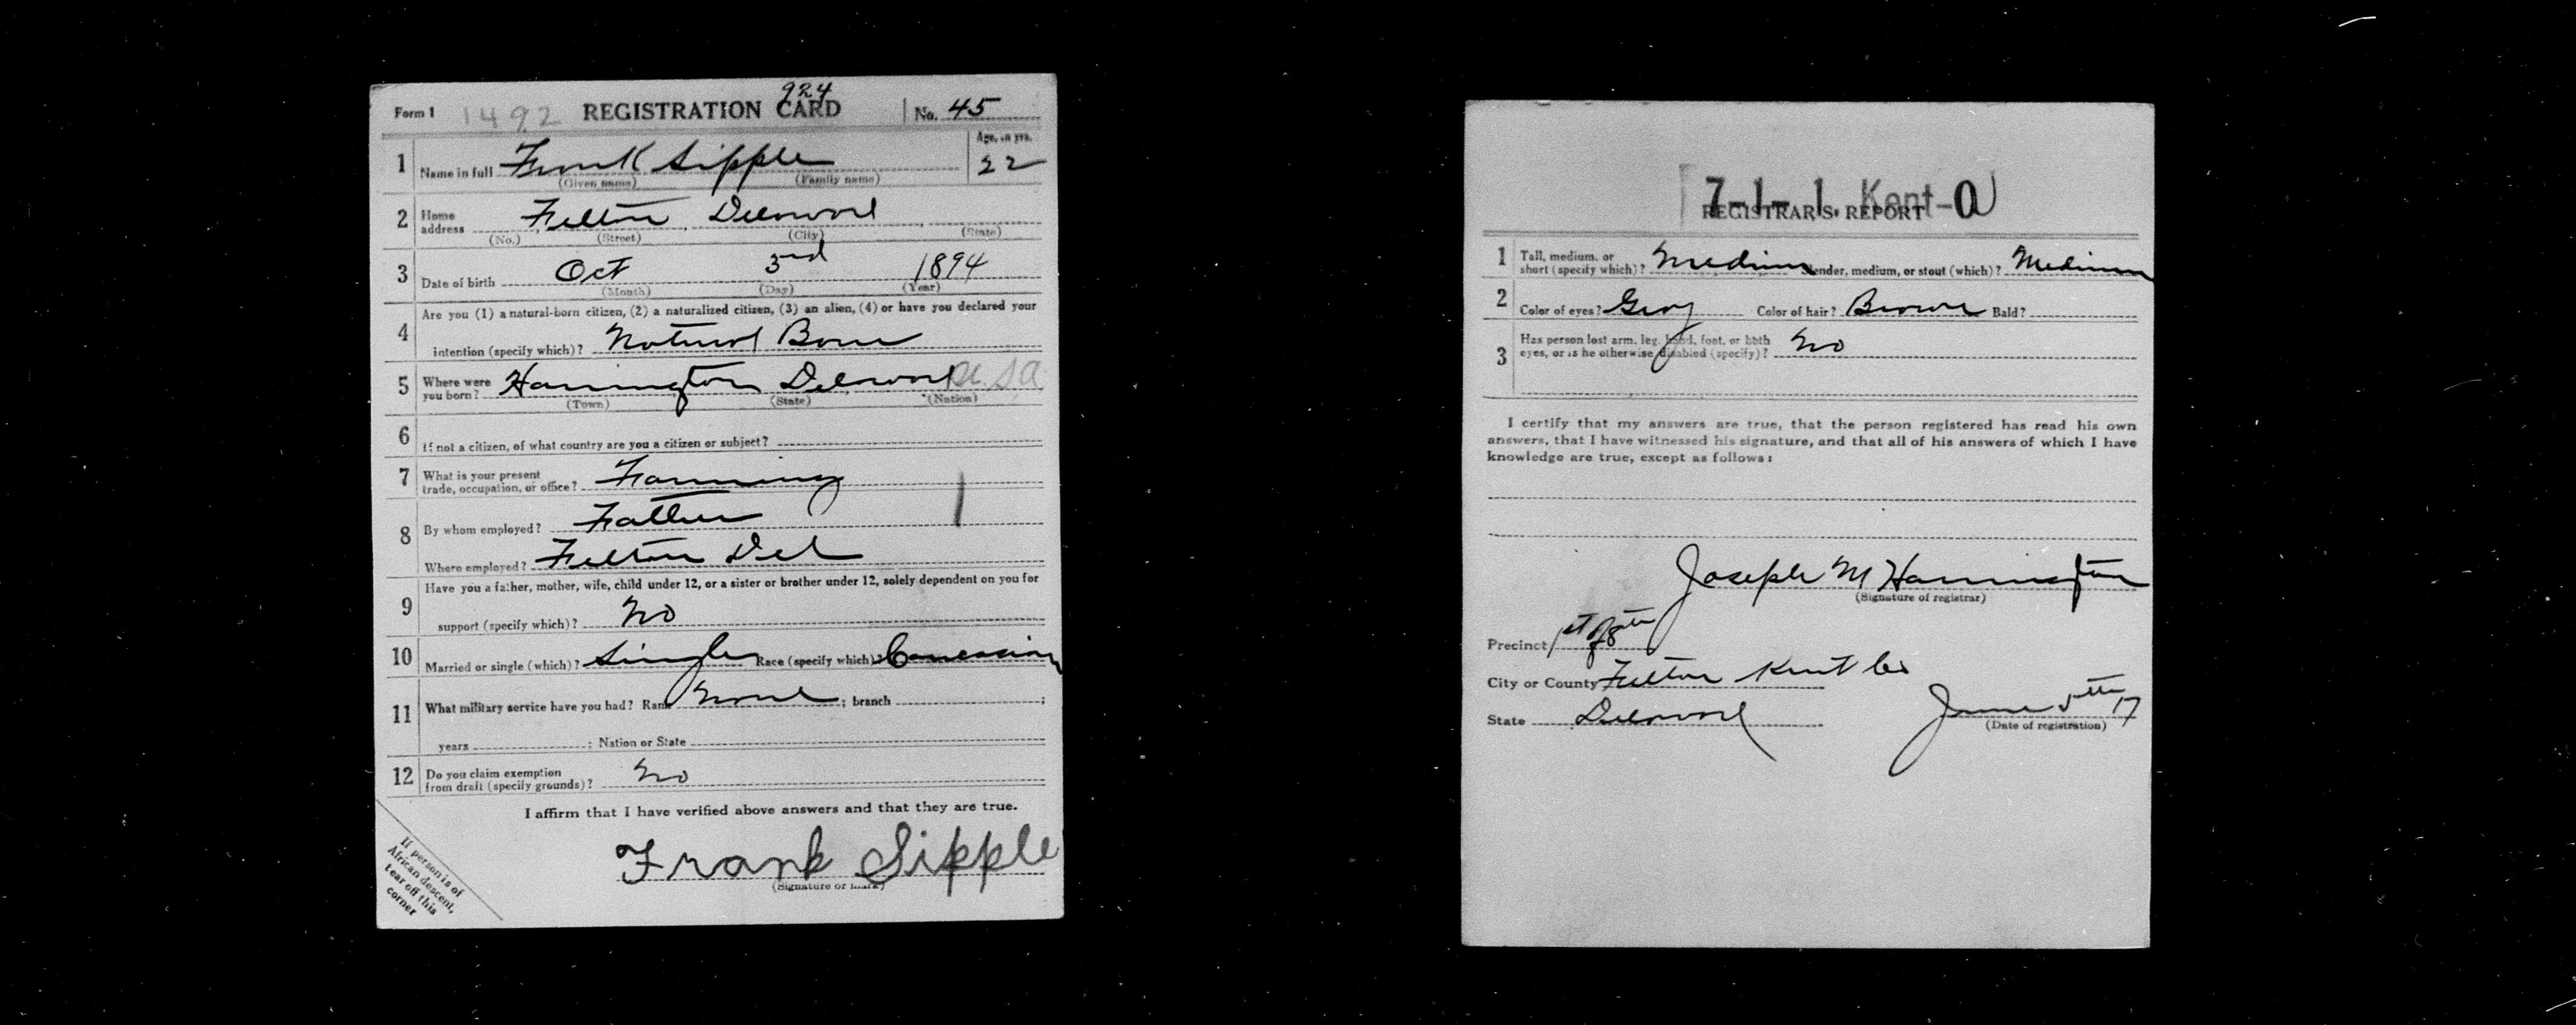 924
Form 1 1492 REGISTRATION CARD No. 45
Age, in yrs.
1 Name in full Frank Sipple 22
(Given name) (Family name)
2 Home address Felton, Delaware
(No.) (Street) (City) (State)
3 Date of birth Oct 3rd 1894
(Month) (Day) (Year)
Are you (1) a natural-born citizen, (2) a naturalized citizen, (3) an alien, (4) or have you declared your
4 intention (specify which)? Natural Born
5 Where were you born? Harrington Delaware U.S.A
(Town) (State) (Nation)
6 If not a citizen, of what country are you a citizen or subject?
7 What is your present trade, occupation, or office? Farming
8 By whom employed? Father
Where employed? Felton Del
Have you a father, mother, wife, child under 12, or a sister or brother under 12, solely dependent on you for
9 support (specify which)? No
10 Married or single (which)? Single Race (specify which)? Caucasian
11 What military service have you had? Rank None ; branch ;
years ; Nation or State
12 Do you claim exemption from draft (specify grounds)? No
I affirm that I have verified above answers and that they are true.
Frank Sipple
(Signature or mark)
If person is of
African descent,
tear off this
corner
7-1-1. Kent-O
REGISTRAR'S REPORT
1 Tall, medium, or short (specify which)? Medium Slender, medium, or stout (which)? Medium
2 Color of eyes? Gray Color of hair? Brown Bald?
3 Has person lost arm, leg, hand, foot, or both eyes, or is he otherwise disabled (specify)? No
I certify that my answers are true, that the person registered has read his own
answers, that I have witnessed his signature, and that all of his answers of which I have
knowledge are true, except as follows:
Joseph M Harrington
(Signature of registrar)
Precinct 1st of 8th
City or County Felton Kent Co
State Delaware June 5th 17
(Date of registration)